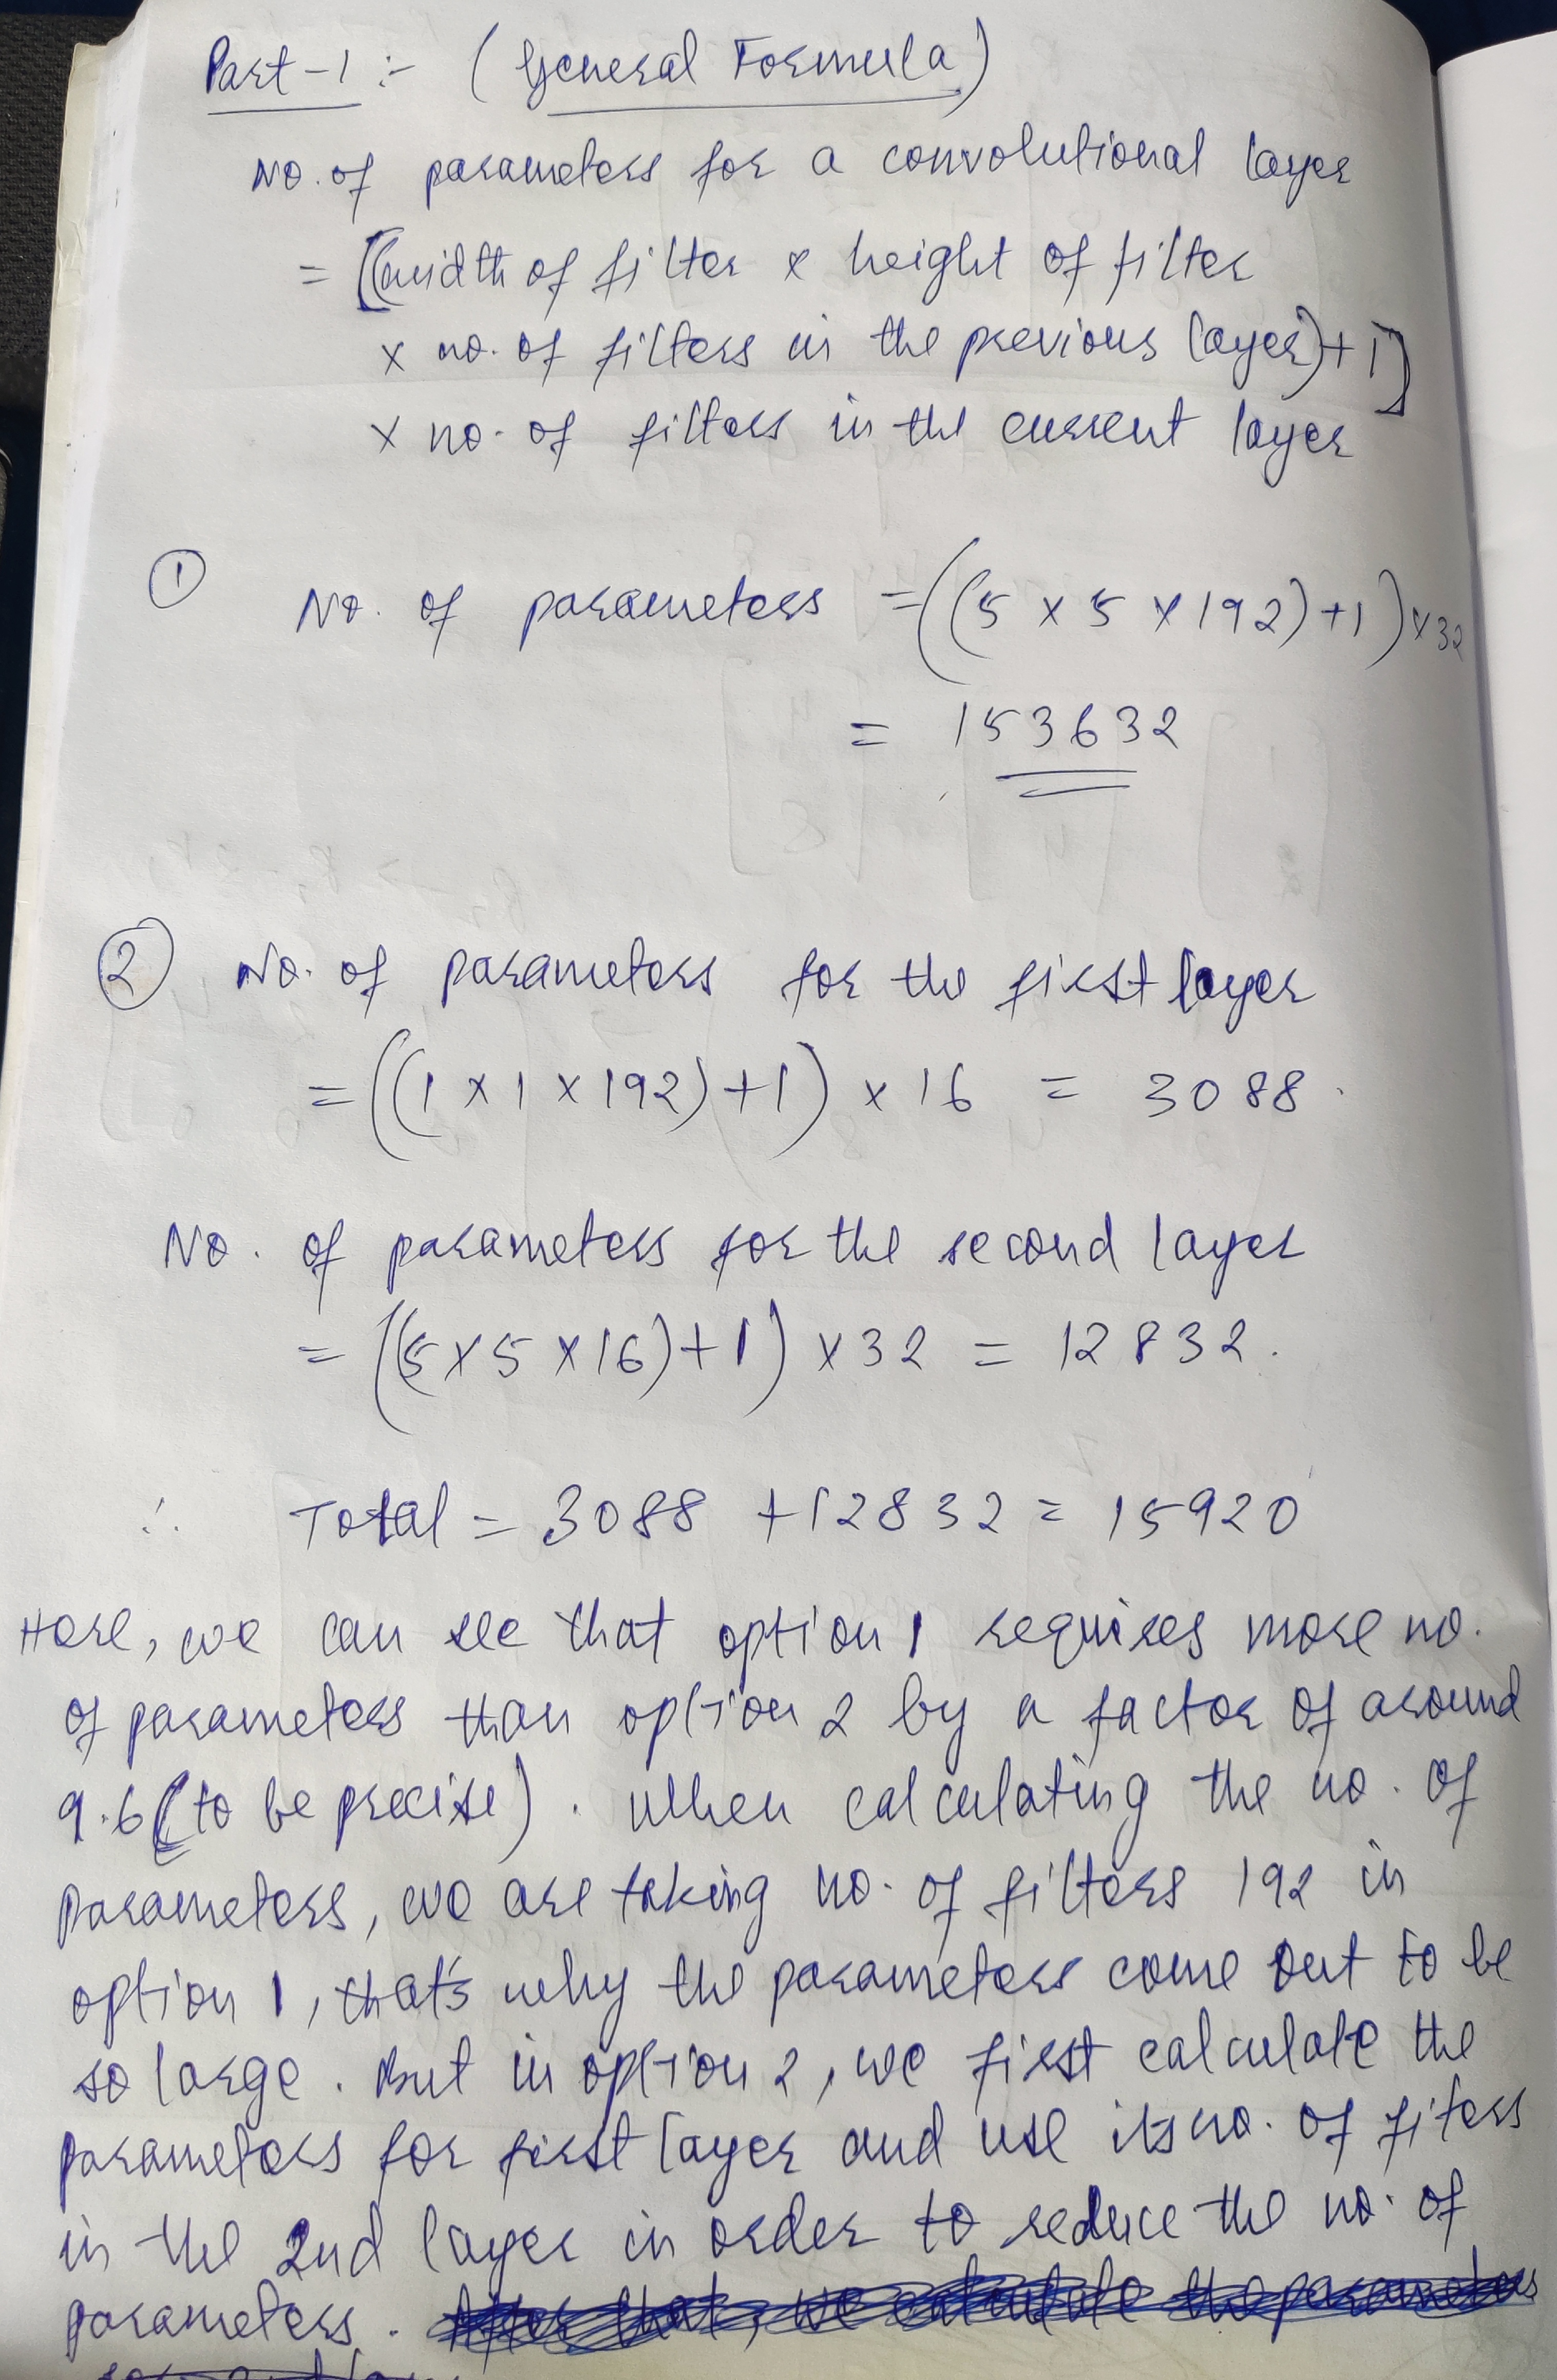 Part-1 :- (General Formula)
No. of parameters for a convolutional layer
= [(width of filter x height of filter
x no. of filters in the previous layer)+1]
x no. of filters in the current layer
① No. of parameters = ((5 x 5 x 192)+1)x32
= 153632
② No. of parameters for the first layer
= ((1 x 1 x 192)+1) x 16 = 3088.
No. of parameters for the second layer
= ((5 x 5 x 16)+1) x 32 = 12832.
∴ Total = 3088 + 12832 = 15920
Here, we can see that option 1 requires more no.
of parameters than option 2 by a factor of around
9.6 (to be precise). When calculating the no. of
parameters, we are taking no. of filters 192 in
option 1, that's why the parameters come out to be
so large. But in option 2, we first calculate the
parameters for first layer and use its no. of fiters
in the 2nd layer in order to reduce the no. of
parameters. After that, we calculate the parameters